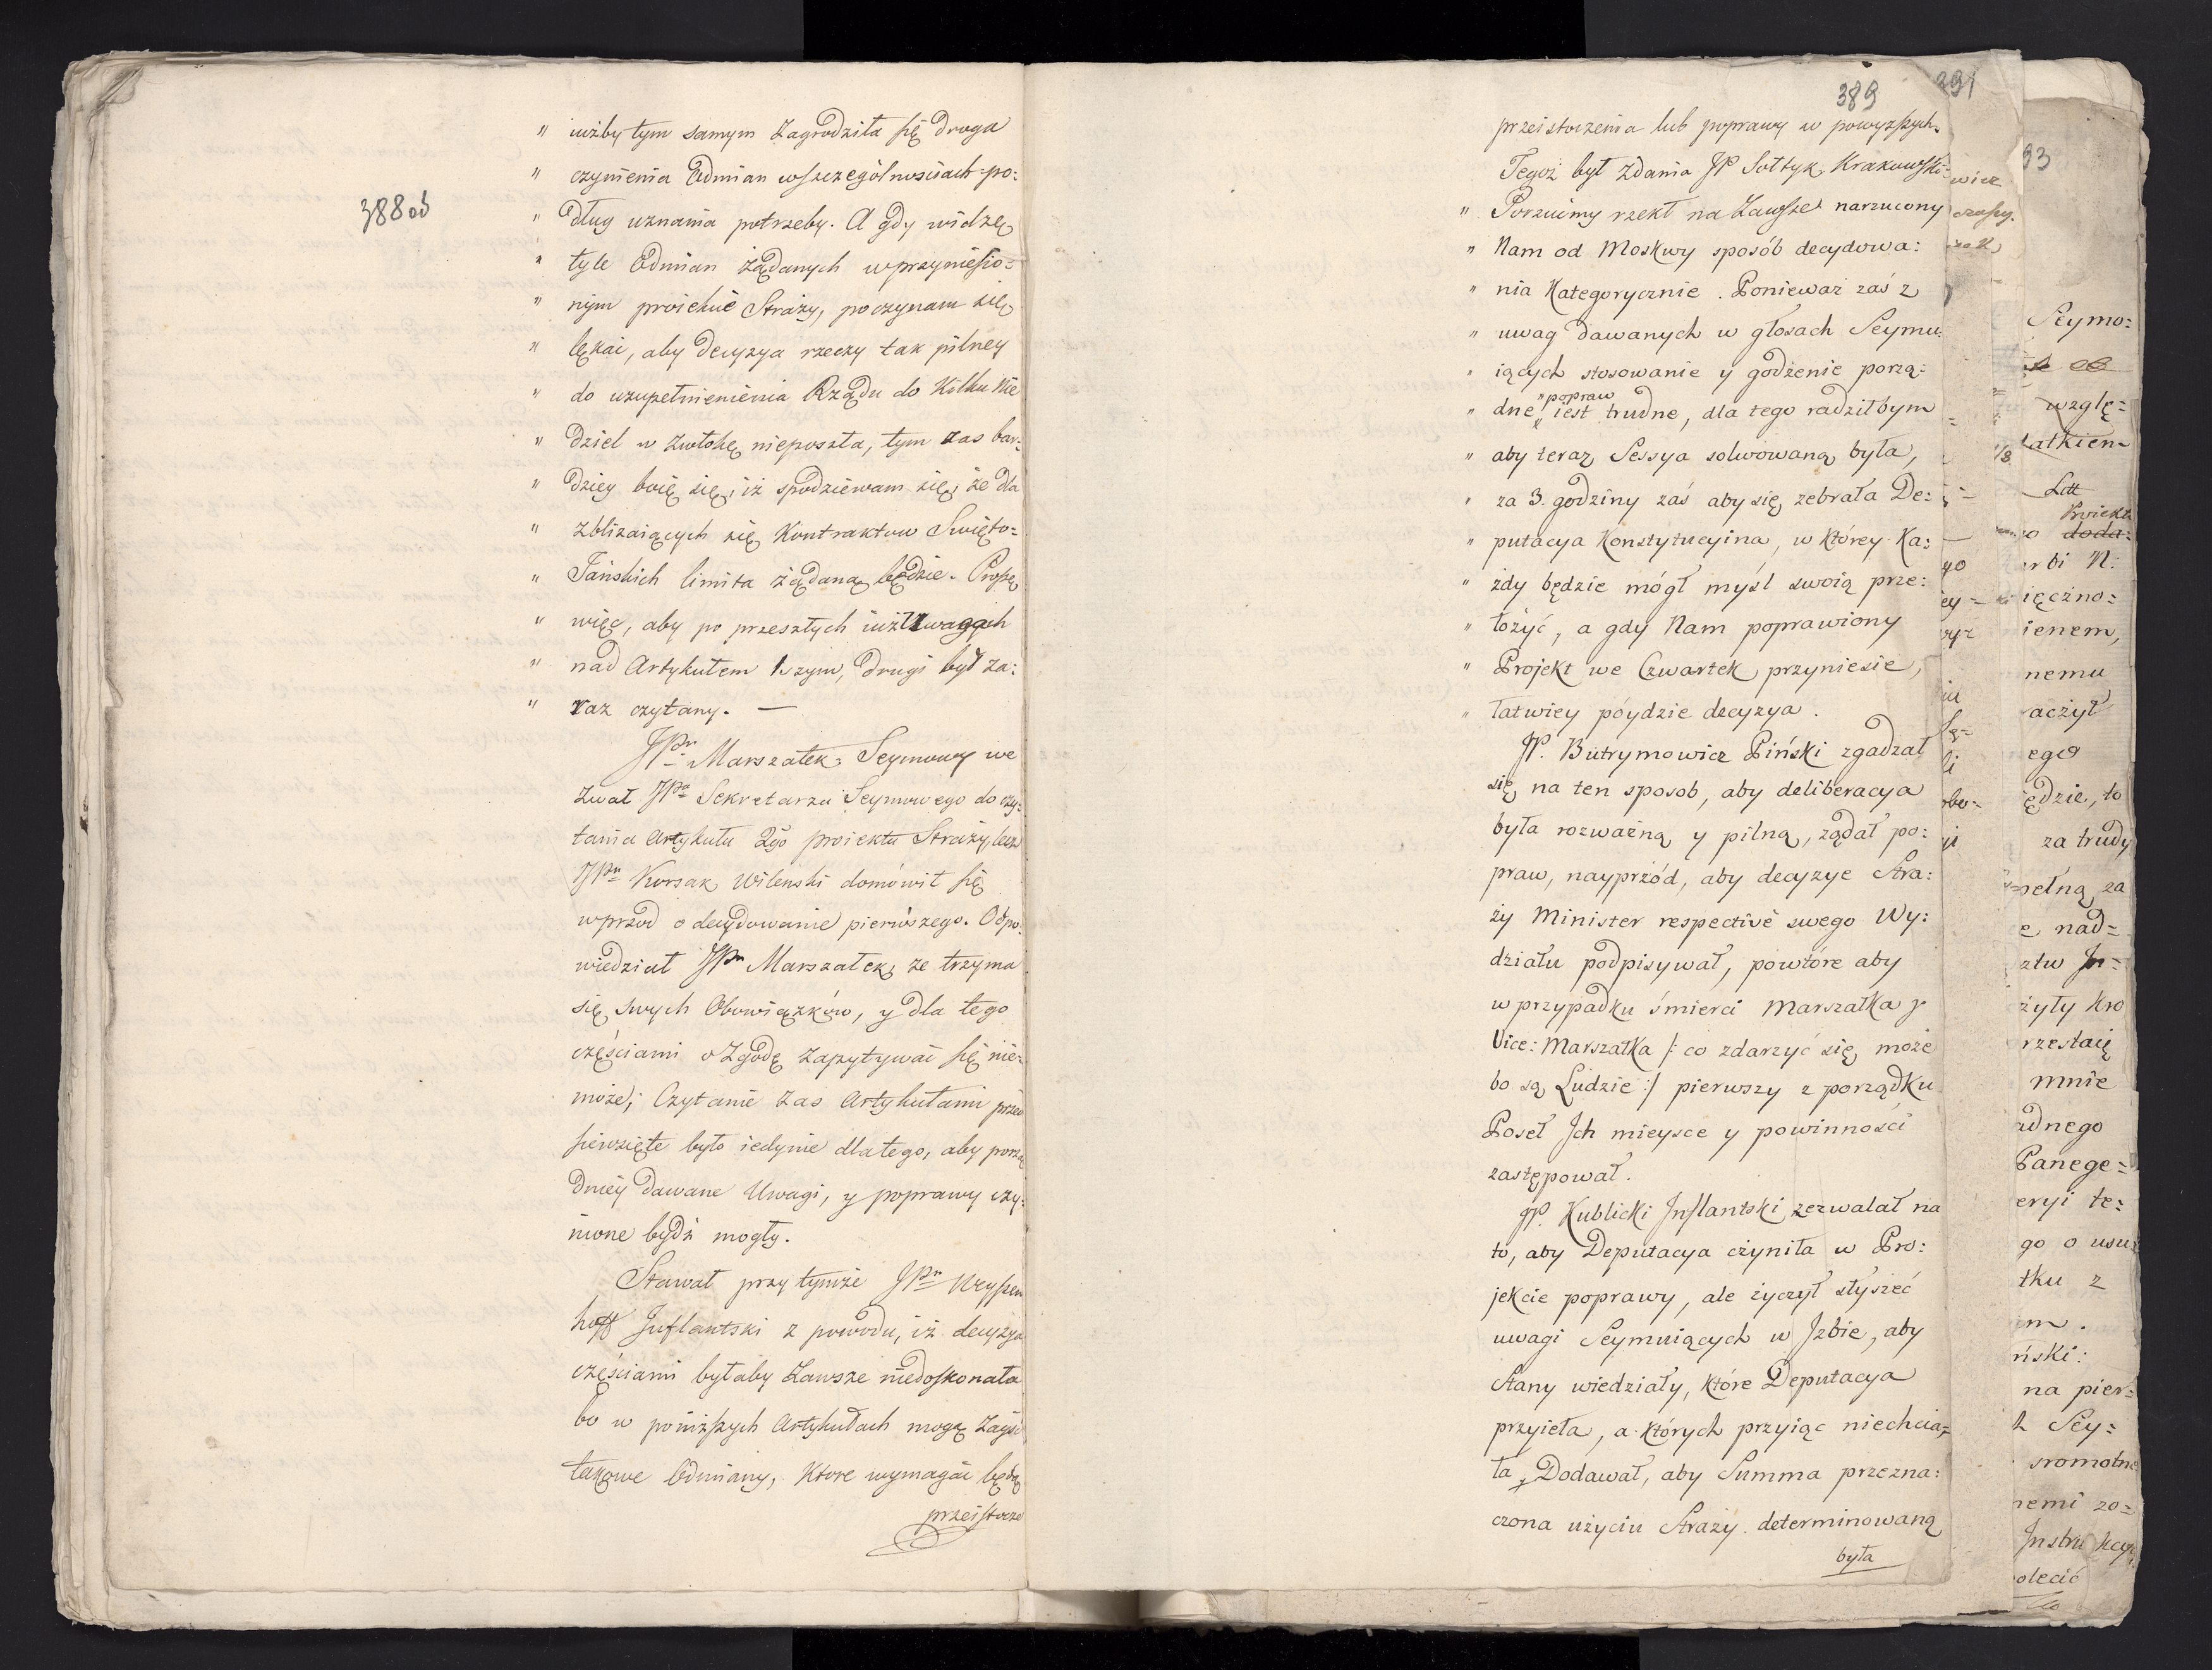 388 od
" iużby tym samym Zagrodziła się droga
" czynienia Odmian wszczególnosciach po:
" dług uznania potrzeby. A gdy widzę
" tyle Odmian żądanych wprzyniesio=
" nym proiekcie Straży, poczynam się
" lękai, aby decyzya rzeczy tak pilney
" do uzupełnienienia Rządu do Kilku Nie
" dziel w zwłokę nieposzła, tym zas bar:
" dziey boię się, iż spodziewam się, że dla
" zbliżaiących się Kontraktow Swięto=
" Jańskich limita żądaną będzie. Proszę
" więc, aby po przeszłych iuż Uwagach
" nad Artykułem 1szym, drugi był za:
" raz czytany. —
JPn Marszałek Seymowy we
zwał JPa Sekretarza Seymowego do czy:
tania Artykułu 2go proiektu Straży, lecz
JPn Korsak Wilenski domówił się
wprzod o decydowanie pierwszego. Odpo:
wiedział JPn Marszałek, ze trzyma
się swych Obowiązków, y dla tego
częściami o Zgodę zapytywać się nie=
może; Czytanie zas Artykułami przed
sięwzięte było iedynie dlatego, aby porzą
dniey dawane Uwagi, y poprawy czy:
nione bydź mogły.
Stawał przy tymże JPn Weyssen
hoff Inflantski z powodu, iż decyzya
częściami byłaby Zawsze niedoskonała
bo w poniższych Artykułach mogą Zayść
takowe Odmiany, Ktore wymagać będą
przeistocze
389 391
przeistoczenia lub poprawy w powyzszych.
Tegoż był zdania JP Sołtyk Krakowski:
" Porzućmy rzekł na Zawsze narzucony
" Nam od Moskwy sposób decydowa:
" nia Kategorycznie. Ponieważ zaś z
" uwag dawanych w głosach Seymu:
" iących stosowanie y godzenie porzą:
" popraw
" dne iest trudne, dla tego radziłbym
" aby teraz Sessya solwowaną była,
" za 3. godziny zaś aby się zebrała De:
" putacya Konstytucyina, w Którey Ka:
" żdy będzie mógł myśl swoią prze:
" łożyć, a gdy Nam poprawiony
" Projekt we Czwartek przyniesie,
" łatwiey póydzie decyzya.
JP. Butrymowicz Piński zgadzał
się na ten sposob, aby deliberacya
była rozważną y pilną, żądał po:
praw, nayprzód, aby decyzye Stra:
ży Minister respectivè swego Wy:
działu podpisywał, powtóre aby
w przypadku śmierci Marszałka y
Vice: Marszałka /: co zdarzyć się może
bo są Ludzie :/ pierwszy z porządku
Poseł Ich mieysce y powinności
zastępował.
JP. Kublicki Inflantski zezwalał na
to, aby Deputacya czyniła w Pro:
jekcie poprawy, ale życzył słyszeć
uwagi Seymuiących w Izbie, aby
Stany wiedziały, które Deputacya
przyieła, a których przyiąc niechcia=
ła, Dodawał, aby Summa przezna:
czona użyciu Straży determinowaną
była
Seymo:
wzglę=
Litt
Proiekt
doda:
ięczno=
ienem,
nemu
aczył
ego
ędzie, to
za trudy
pełną za
e nad=
żyły Kro
rzestaię
mnie
adnego
Panege=
eryi te:
go o usu
tku z
m.
ński:
na pier=
Sey:
sromotne
nemi zo=
Instrukcy
olecić